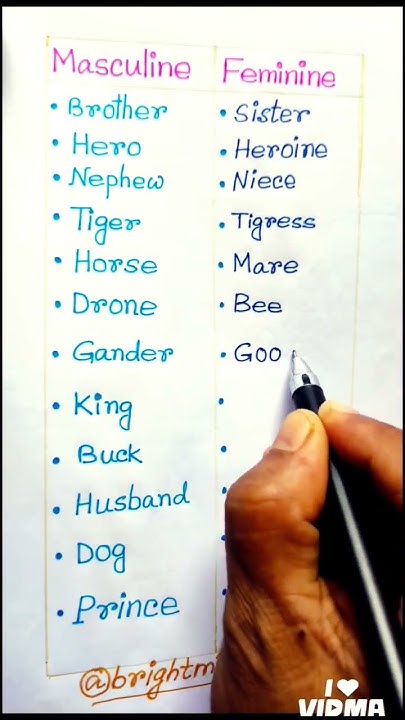 Masculine Feminine
• Brother • Sister
• Hero • Heroine
• Nephew • Niece
• Tiger • Tigress
• Horse • Mare
• Drone • Bee
• Gander • Goo
• King •
• Buck •
• Husband
• Dog
• Prince
@brightm
I ❤
VIDMA